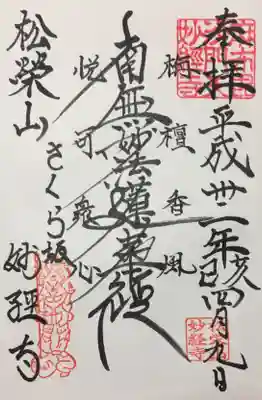 奉拝 平成卅一年己亥四月九日
栴檀香風
南無妙法蓮華経
悦可衆心
松榮山 さくら板 妙經寺
妙経寺